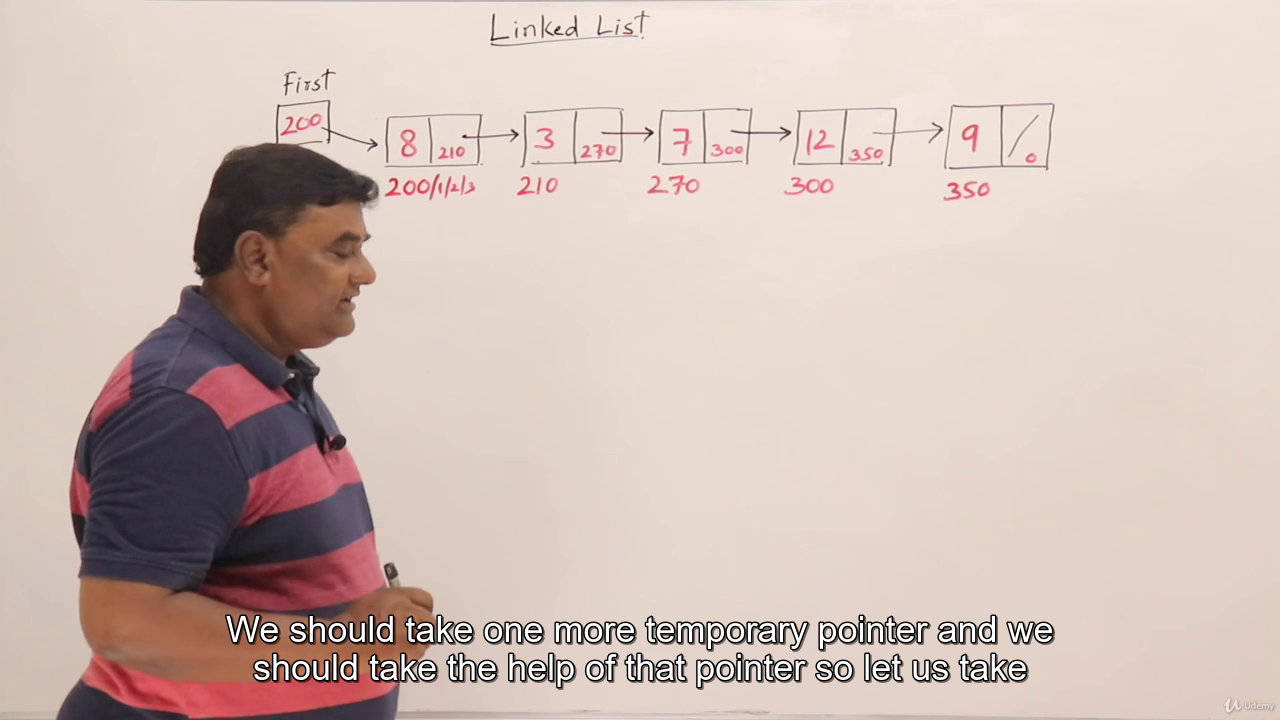 Linked List
First
200
8 210 3 270 7 300 12 350 9 / 0
200/1/2/3 210 270 300 350
We should take one more temporary pointer and we
should take the help of that pointer so let us take
Udemy